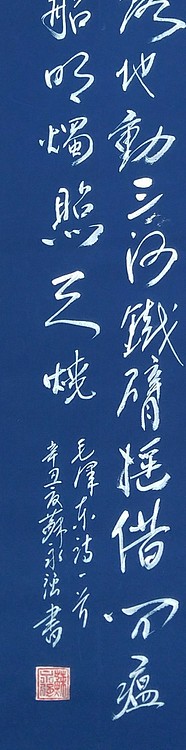 落地動三河鐵臂摇借问瘟
船明燭照天烧
毛澤东诗一首
辛丑夏蘇永强書